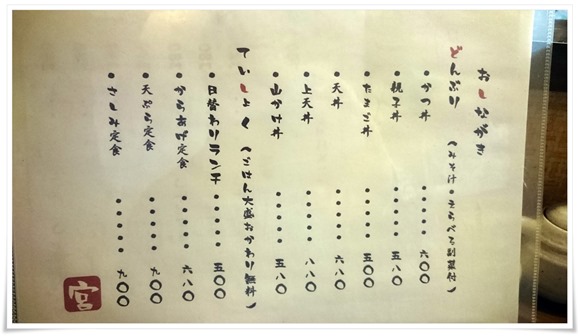 おしながき
どんぶり (みそ汁・えらべる副菜付)
・かつ丼 ・・・・・ 六〇〇
・親子丼 ・・・・・ 五八〇
・たまご丼 ・・・・・ 五〇〇
・天丼 ・・・・・ 六八〇
・上天丼 ・・・・・ 八八〇
・山かけ丼 ・・・・・ 五八〇
ていしょく (ごはん大盛おかわり無料)
・日替わりランチ ・・・・・ 五〇〇
・からあげ定食 ・・・・・ 六八〇
・天ぷら定食 ・・・・・ 九〇〇
・さしみ定食 ・・・・・ 九〇〇
宮